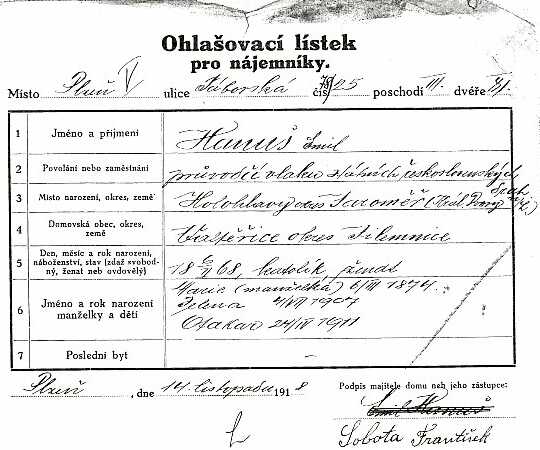 Ohlašovací lístek
pro nájemníky.
Místo Plzeň V ulice Táborská čís 25 poschodí III. dveře
1 Jméno a příjmení Hanuš Emil
2 Povolání nebo zaměstnání průvodčí vlaku státních československých
3 Místo narození, okres, země Holohlavy okres Jaroměř
4 Domovská obec, okres, země okres Jilemnice
5 Den, měsíc a rok narození, náboženství, stav (zdaž svobodný, ženat neb ovdovělý) 18 68, katolík, ženat
6 Jméno a rok narození manželky a dětí Marie (manželka) 6/III 1874.
Jelena 4/VII 1907
Otakar 24/IV 1911
7 Poslední byt —
Plzeň, dne 14. listopadu 1918
Podpis majitele domu neb jeho zástupce:
Emil Hanuš
Sobota František